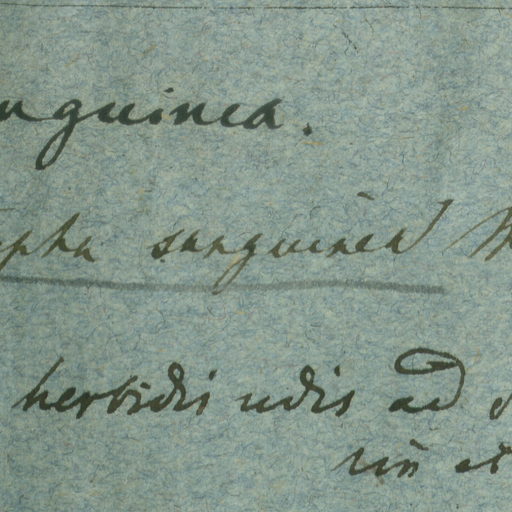 nguinea.
pha sanguinea
herbidis udis ad